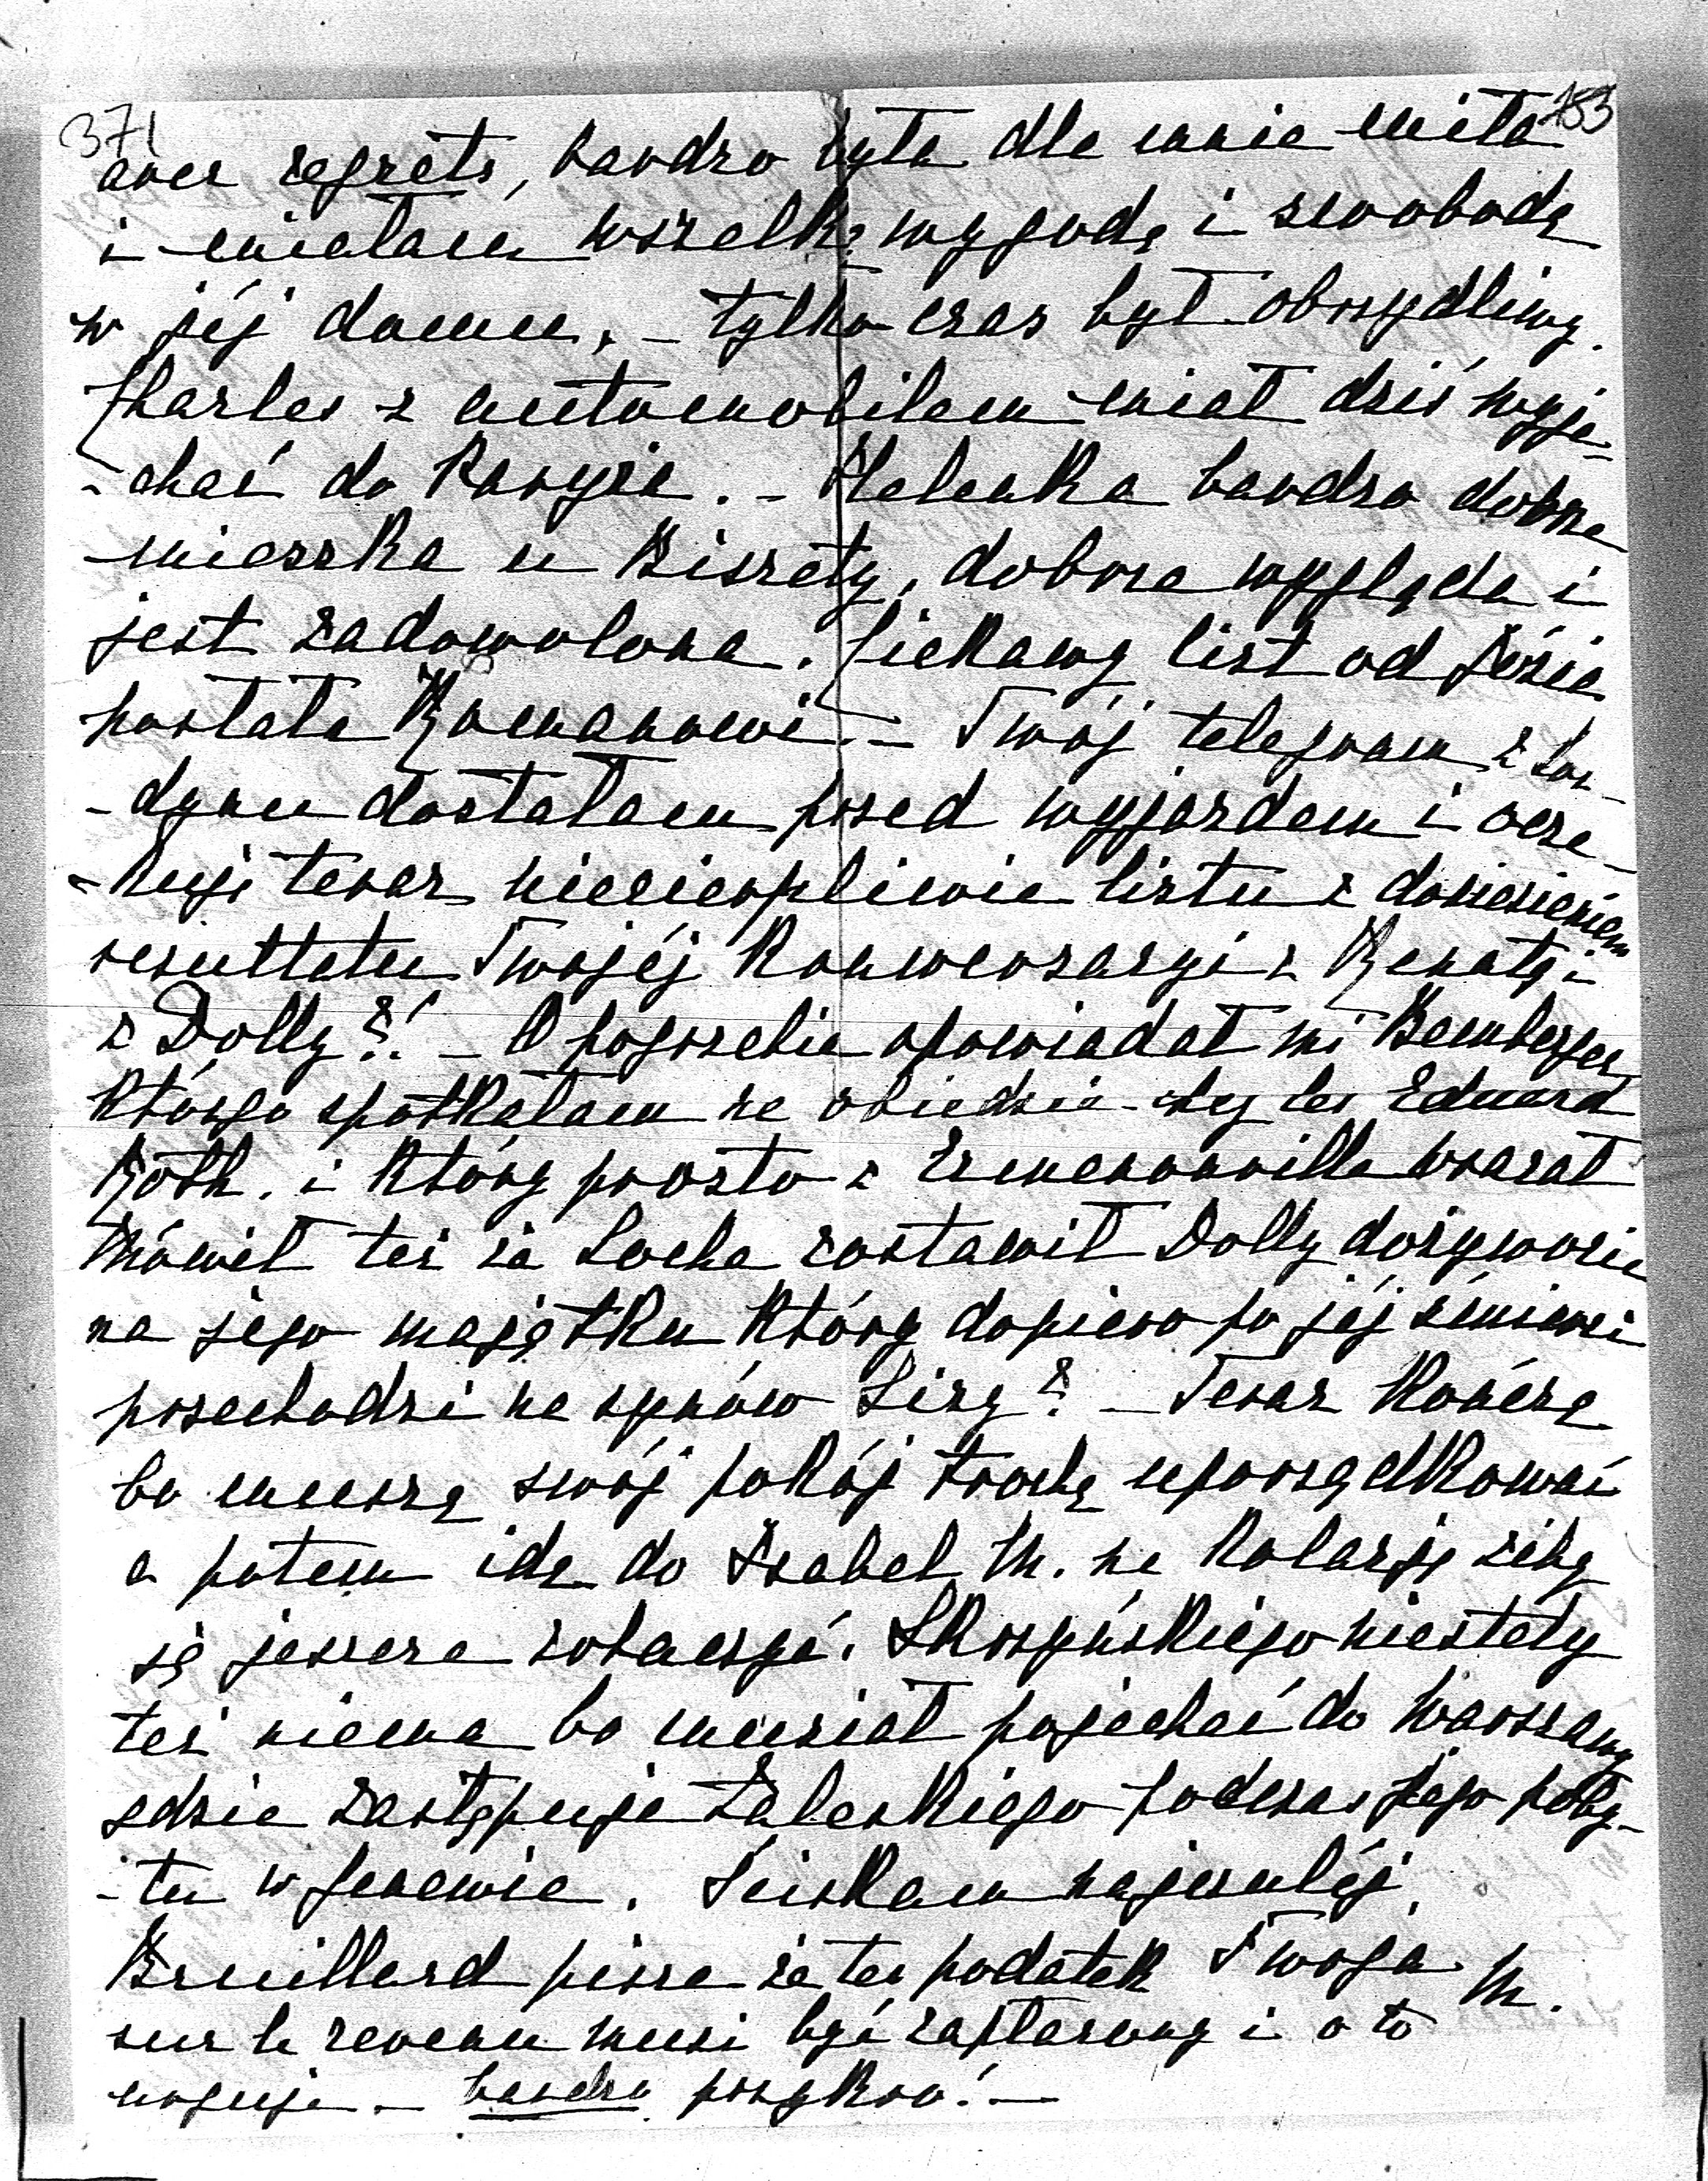 371 153
avec regrets, bardzo była dla mnie miła
i miałam wszelką wygodę i swobodę
w jéj domu, – tylko czas był obrzydliwy.
Charles z automobilem miał dziś wyje-
-chać do Paryża. – Helenka bardzo dobrze
mieszka u Biszety, dobrze wygląda i
jest zadowolona. Ciekawy list od Józia
posłała Romanowi. – Twój telegram z Lon-
-dynu dostałam przed wyjazdem i ocze-
-kuję teraz niecierpliwie listu z doniesieniem
resultatu Twojéj konwersacyi z Renatą i
z Dolly?! – O pogrzebie opowiadał mi Bemberger
którego spotkałam na obiedzie chez les Eduard
Roth. i który prosto z Ermenonville wracał
Mówił też że Loche zostawił Dolly dożywocie
na jego majątku który dopiero po jéj śmierci
przechodzi na synów Lizy? – Teraz kończę
bo muszę swój pokój trochę uporządkować
a potem idę do Izabel M. na kolację żeby
ją jeszcze zobaczyć. Skrzyńskiego niestety
też niema bo musiał pojechać do Warszawy
gdzie zastępuje Zaleskiego podczas jego poby-
-tu w Genewie. Ściskam najczuléj
Twoja M.
Bruillard pisze że ten podatek
sur le revenu musi być zapłacony i o to
– bardzo przykro! –